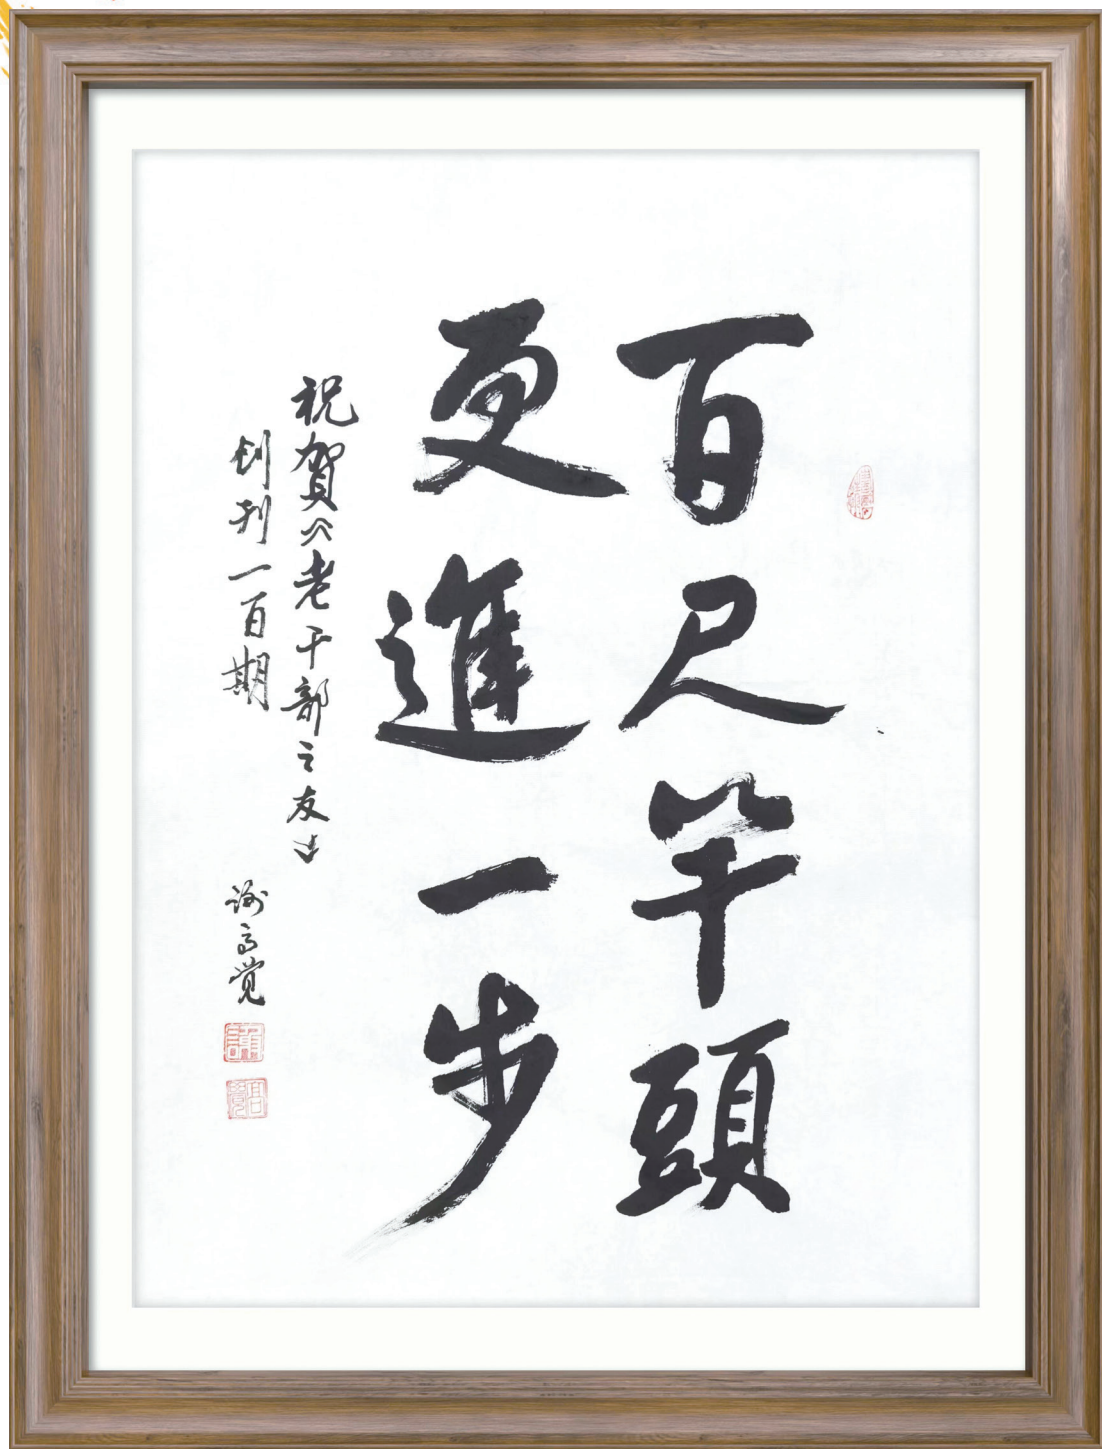 百尺竿頭
更進一步
祝賀《老干部之友》
创刊一百期
谢高觉